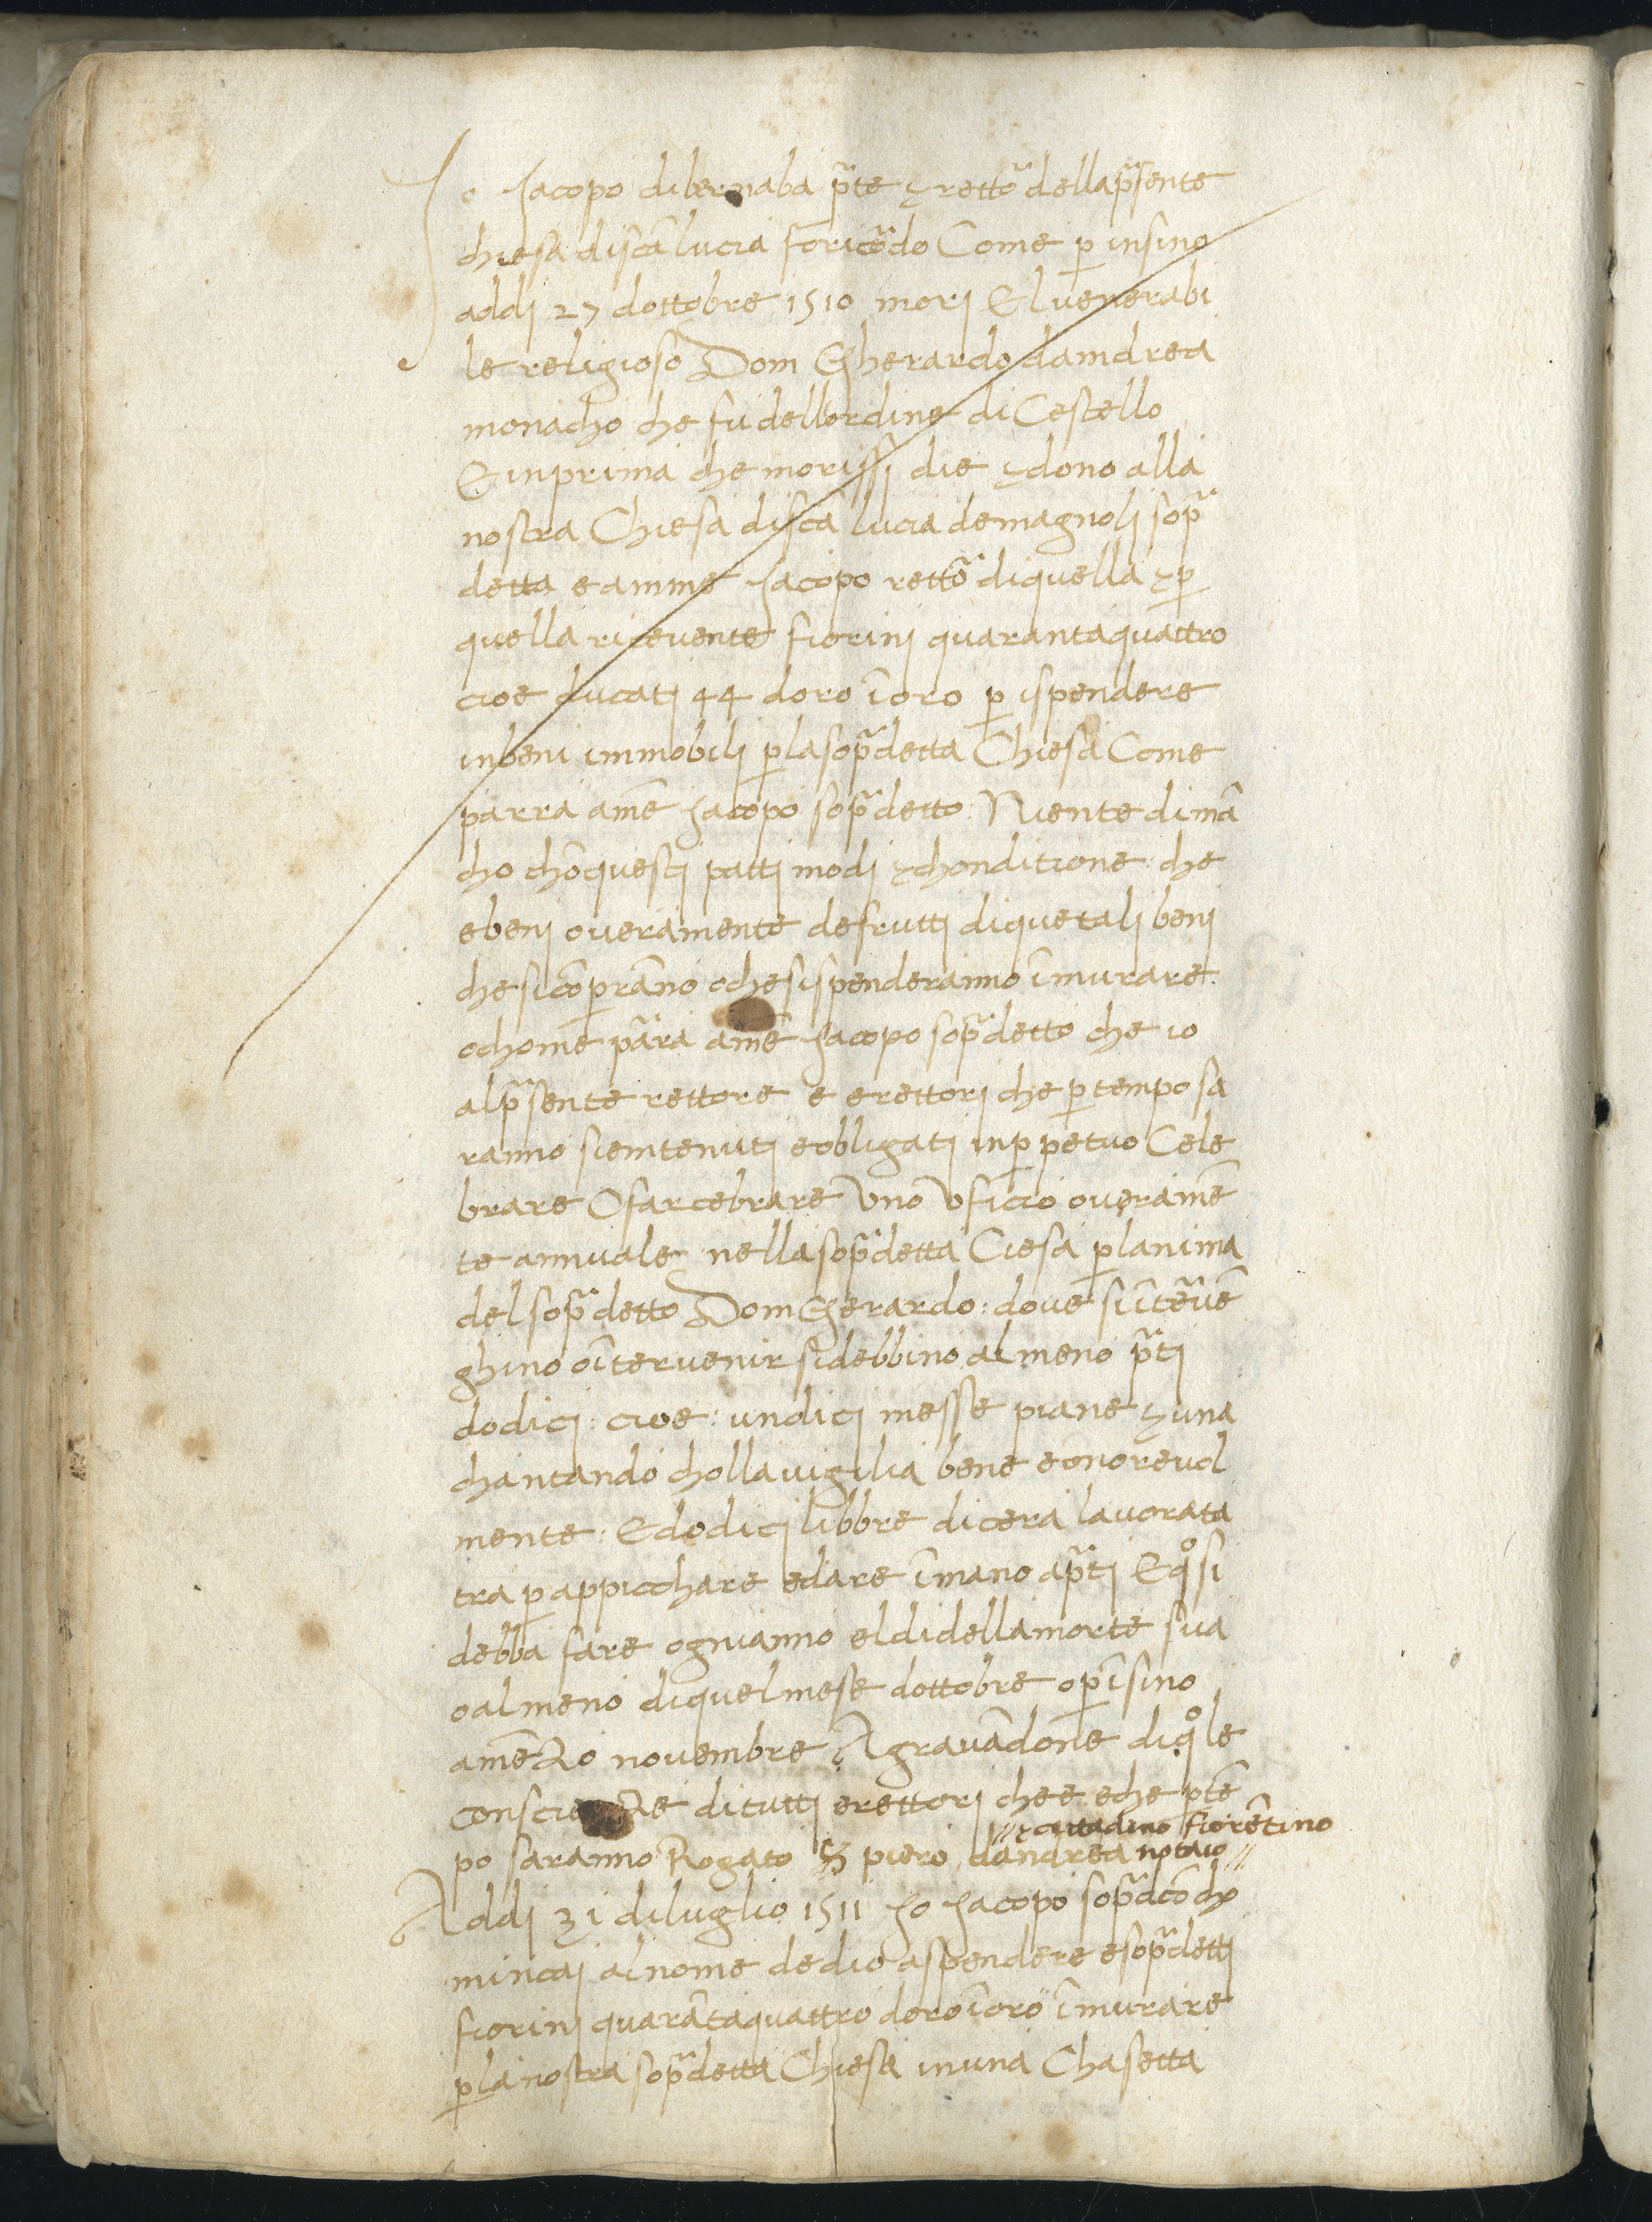 Io Iacopo di bernaba p̃te ⁊ retto᷑ della p̃sente
chiesa di sc̃a lucia fo ricõdo Come p̱ insino
addj 27 dottobre 1510 morj El venerabi
le religioso Dom Gherardo damdrea
monacho che fu dellordine di Cestello
E inprima che morissj die ⁊ dono alla
nostra Chiesa di sc̃a lucia demagnolj sop̃
detta e amme Iacopo retto᷑ diquella ⁊ p̱
quella ricevente fiorinj quarantaquattro
cioe ducatj 44 doro ĩ oro p̱ ispendere
inbeni immobilj p̱ la sop̃detta Chiesa Come
parra amẽ Iacopo sop̃detto: Niente dimã
cho chõ questj pattj modj ⁊ chonditione: che
e benj overamente de fruttj diquetalj benj
che si cõprãno o che sispenderanno ĩ murare
o chome parra amẽ Iacopo sop̃detto che io
alp̃sente rettore e e rettorj che p̱ tempo sa
ranno siemtenutj e obligatj inp̱petuo Cele
brare O far cebrare Uno Uficio overamẽ
te annuale: nella sop̃detta Ciesa p̱ lanima
del sop̃detto Dom Gherardo: dove si ĩtẽvẽ
ghino o ĩtervenir sidebbino al meno p̃tj
dodicj: cioe: undicj messe piane ⁊ una
chantando cholla vigilia bene e onorevol
mente: E dodicj libbre dicera lavorata
tra p̱ appicchare e dare ĩ mano a p̃tj E q̊sj
debba fare ognianno eldi della morte sua
o almeno diquelmese dottobre o p̱ ĩsino
amẽzo novembre Agravãdone diq̊le
conscienze di tuttj e rettorj che e e che p̱ tẽ
⁊ cittadino fiorẽtino
po saranno Rogato S piero dandrea notaio
Addj 31 diluglio 1511 Io Iacopo sop̃dco chõ
mincaj al nome de dio a spendere e sop̃dettj
fiorinj quarãtaquattro doro ĩ oro ĩ murare
p̱ la nostra sop̃detta Chiesa inuna Chasetta